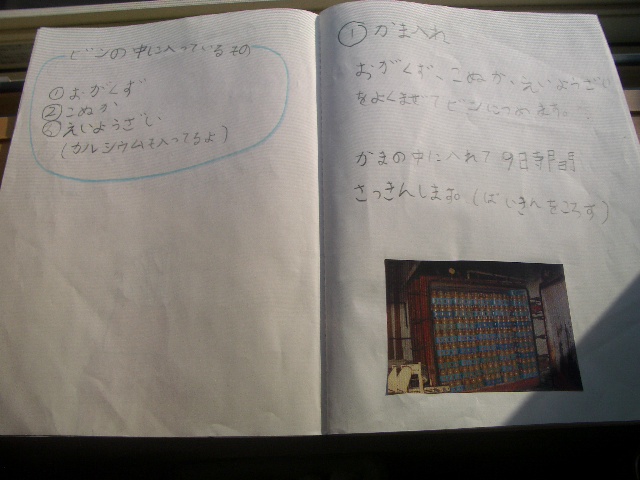 ビンの中に入っているもの
①おがくず
②こぬか
③えいようざい
(カルシウムも入ってるよ)
①かま入れ
おがくず、こぬか、えいようざい
をよくまぜてビンにつめます。
かまの中に入れて9日時間
さっきんします。(ばいきんをころす)